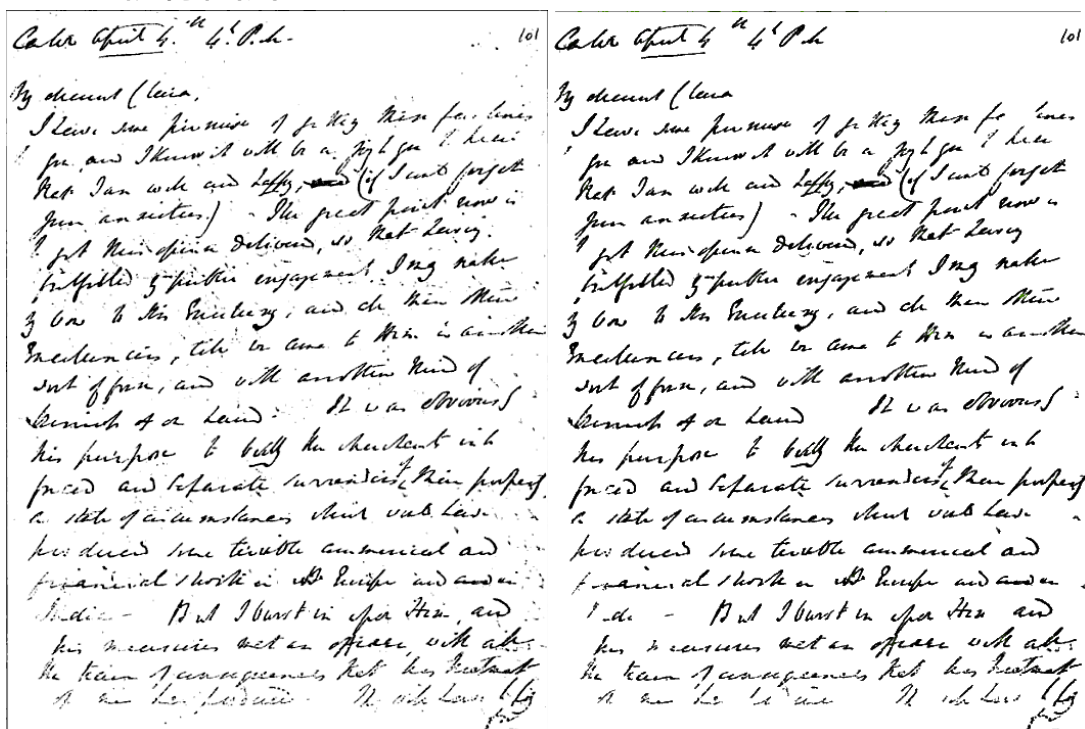 Canton April 4.th 4h. P.M.
101
My dearest Clara,
I have some promise of getting these few lines
to you and I know it will be a joy to you to hear
that I am well and happy, (if I can't forget
your anxieties) - The great point now is
to get the opium delivered, so that having
fulfilled my public engagement I may make
my bow to His Excellency, and all their other
Excellencies, till we come to them in another
sort of guise, and with another kind of
of our hand. It was obviously
his purpose to bully the merchants into
forced and separate surrenders of their property
a state of circumstances which would have
produced some terrible commercial and
financial shock in Europe and in
India - But I burst in upon Him, and
his measures met an officer, with all
the train of consequences that his treatment
of me has produced. He would have
Canton April 4th 4h P.M
101
My dearest Clara
I have some promise of getting these few lines
to you and I know it will be a joy to you to hear
that I am well and happy, (if I can't forget
your anxieties) - The great point now is
to get the opium delivered, so that having
fulfilled my public engagement I may make
my bow to His Excellency, and all their other
Excellencies, till we come to them in another
sort of guise, and with another kind of
of our hand It was obviously
his purpose to bully the merchants into
forced and separate surrenders of their property
a state of circumstances which would have
produced some terrible commercial and
financial shock in Europe and in
India - But I burst in upon Him and
his measures met an officer with all
the train of consequences that his treatment
of me has He would have